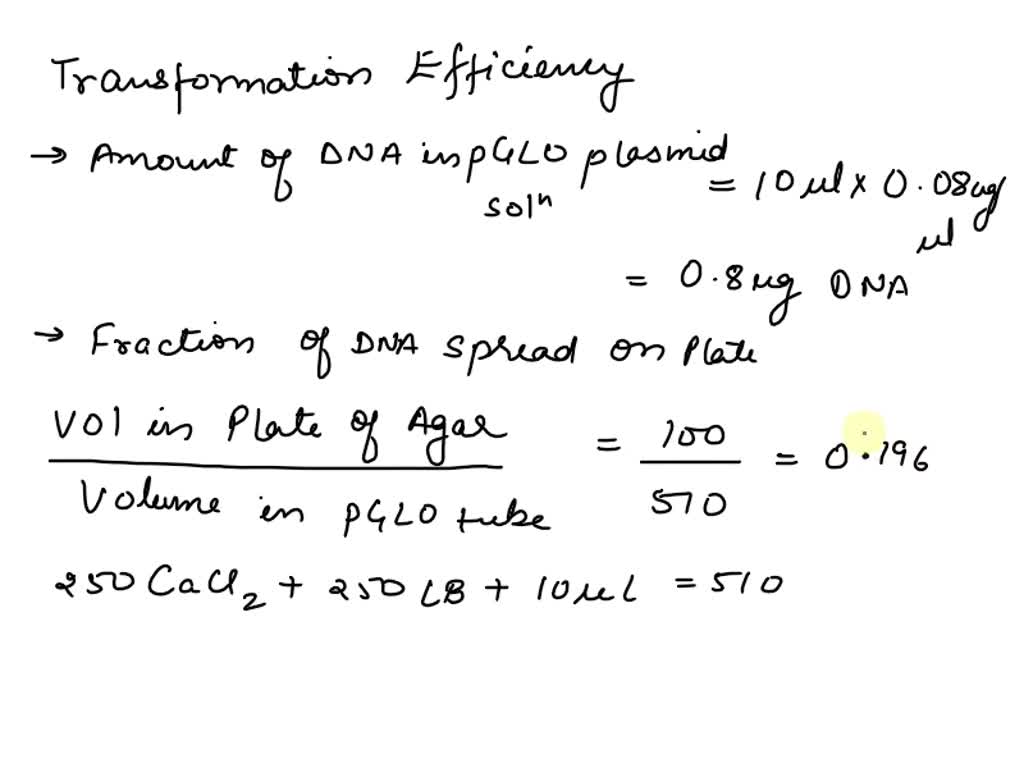 Transformation Efficiency
→ Amount of DNA in pGLO plasmid soln = 10 µl x 0.08 µg/µl
= 0.8 µg DNA
→ Fraction of DNA spread on Plate
Vol in Plate of Agar / Volume in pGLO tube = 100 / 510 = 0.196
250 CaCl2 + 250 LB + 10 µL = 510